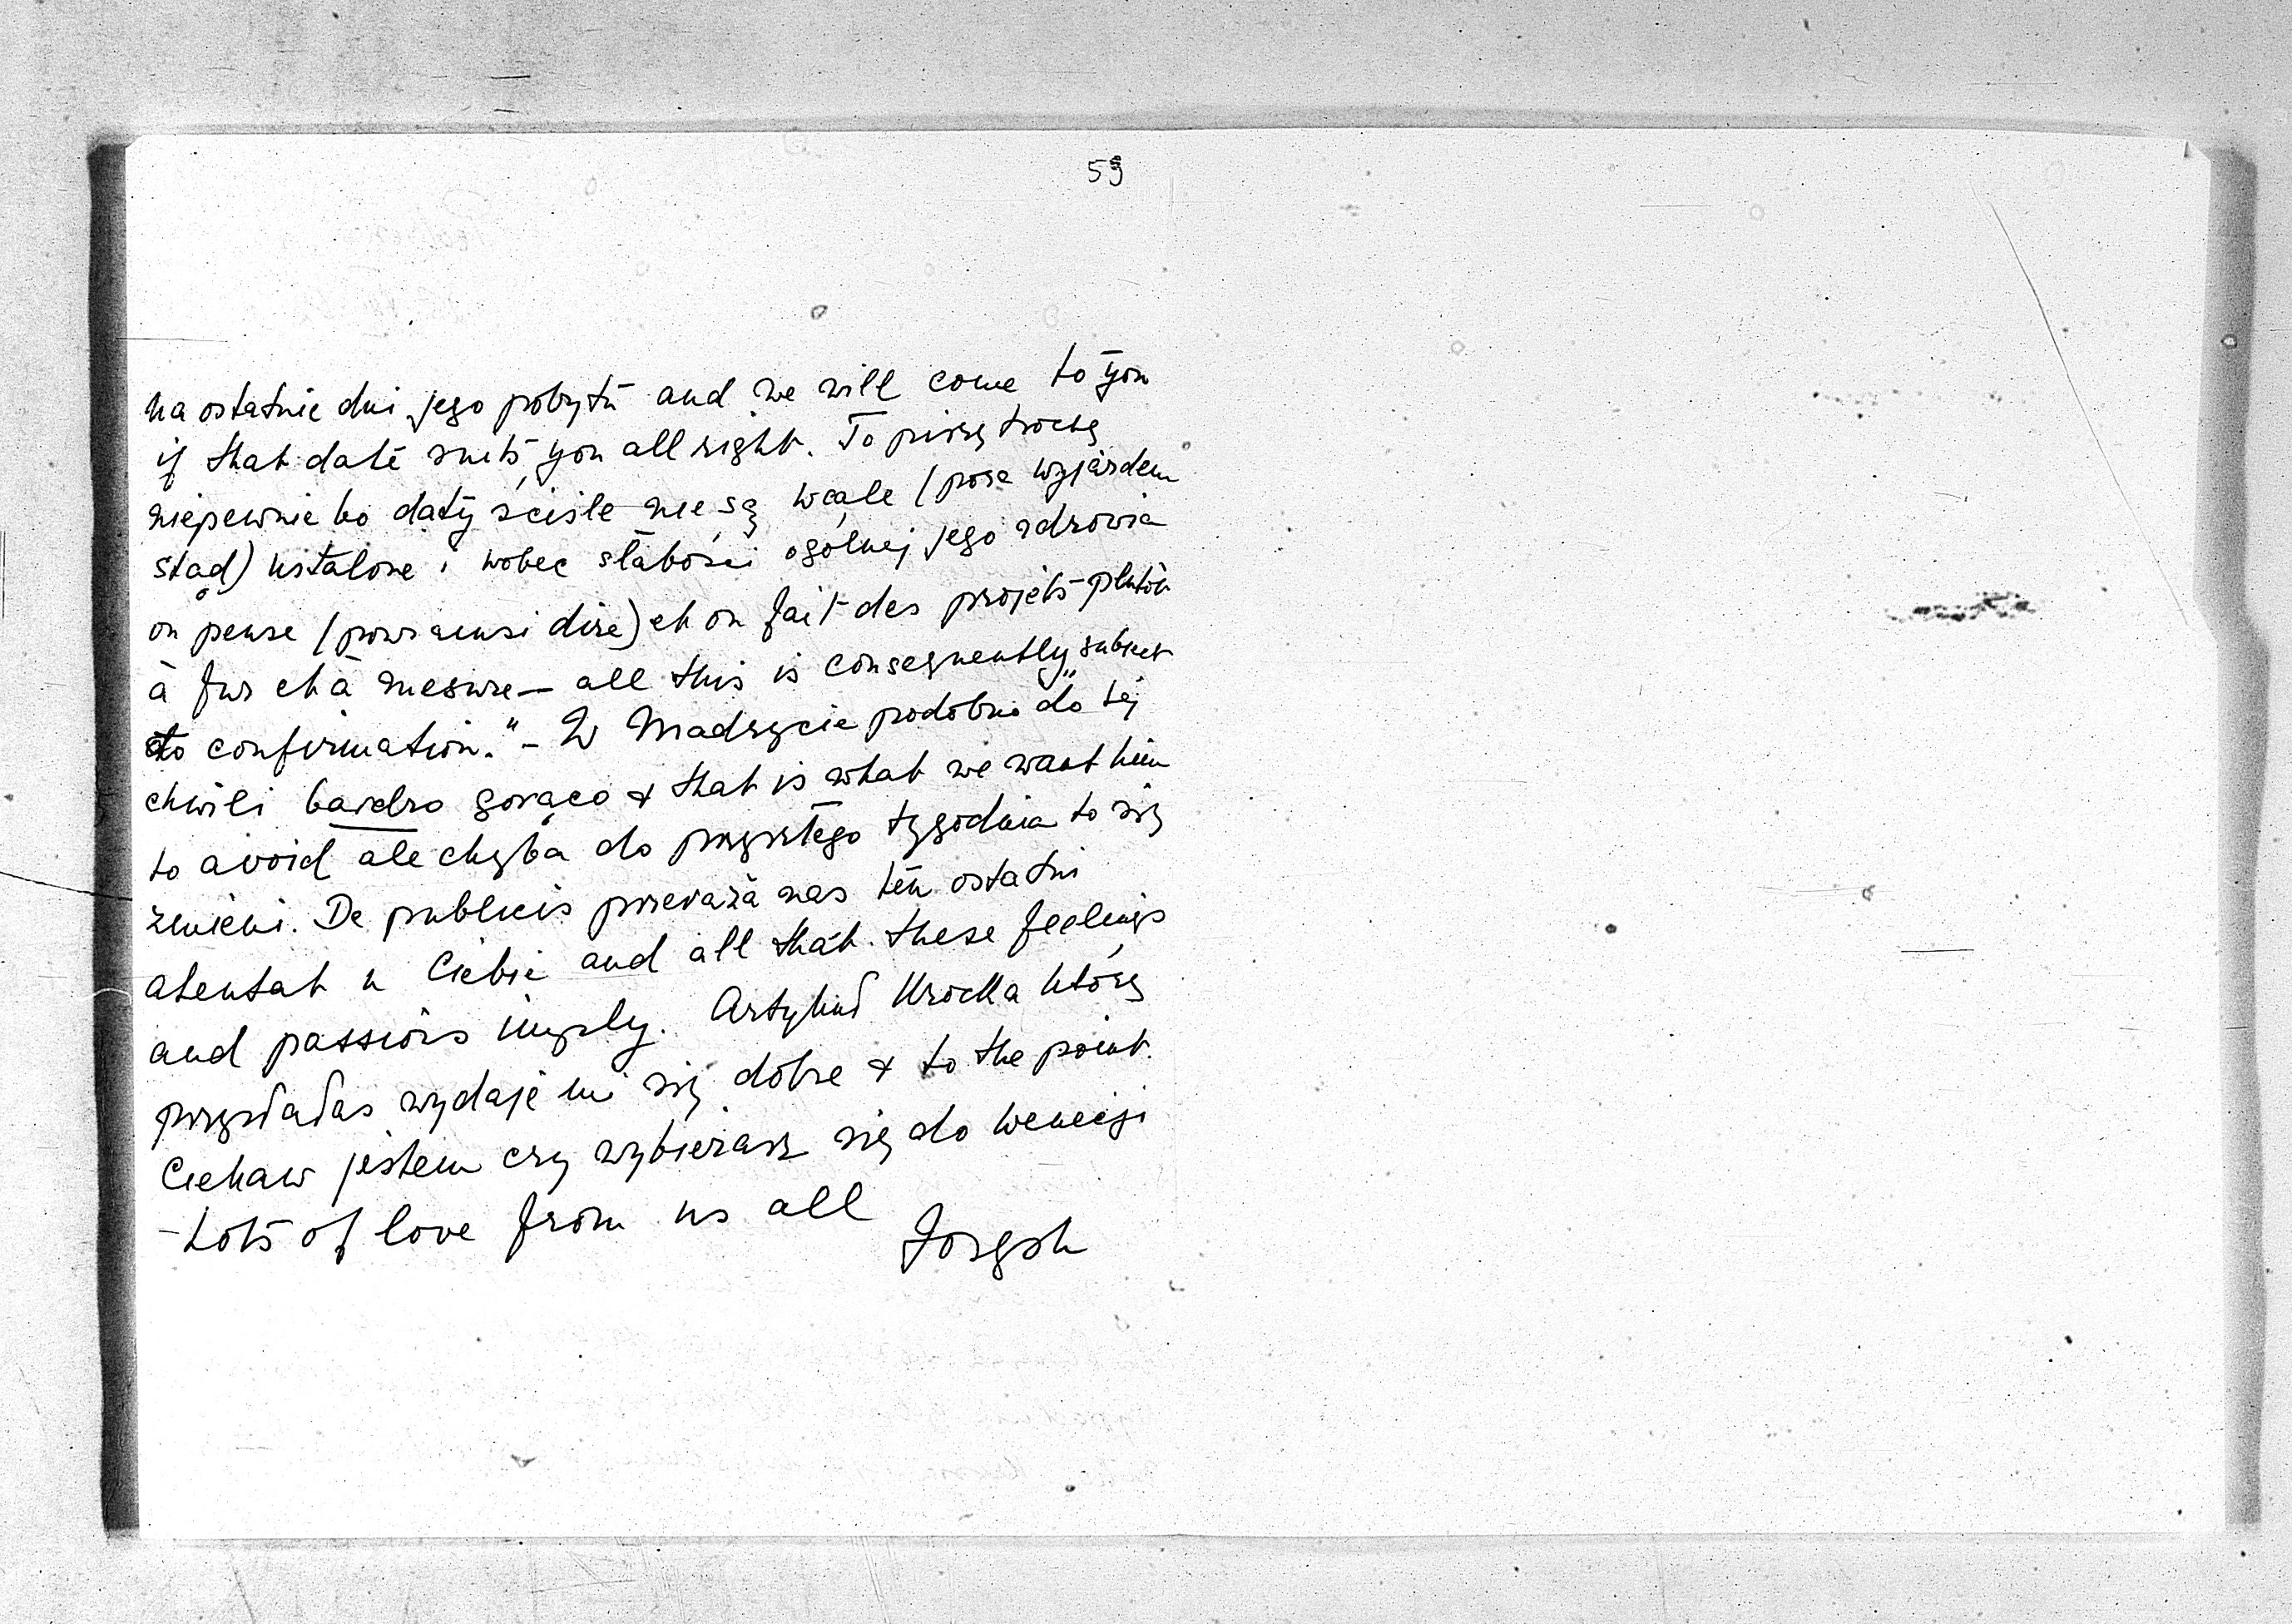 59
na ostatnie dni jego pobytu and we will come to you
if that date suits you all right. To piszę trochę
niepewnie bo daty ściśle nie są wcale (poza wyjazdem
stąd) ustalone i wobec słabości ogólnej jego zdrowia
on pense (pour ainsi dire) et on fait des projets plutôt
à fur et à mesure — all this is consequently „subject
to confirmation." – W Madrycie podobno do tej
chwili bardzo gorąco & that is what we want him
to avoid ale chyba do przyszłego tygodnia to się
zmieni. De publicis przeraża nas ten ostatni
atentat u Ciebie and all that these feelings
and passions imply. Artykuł Krocka który
przysłałaś wydaje mi się dobre & to the point.
Ciekaw jestem czy wybierasz się do Wenecji
– Lots of love from us all